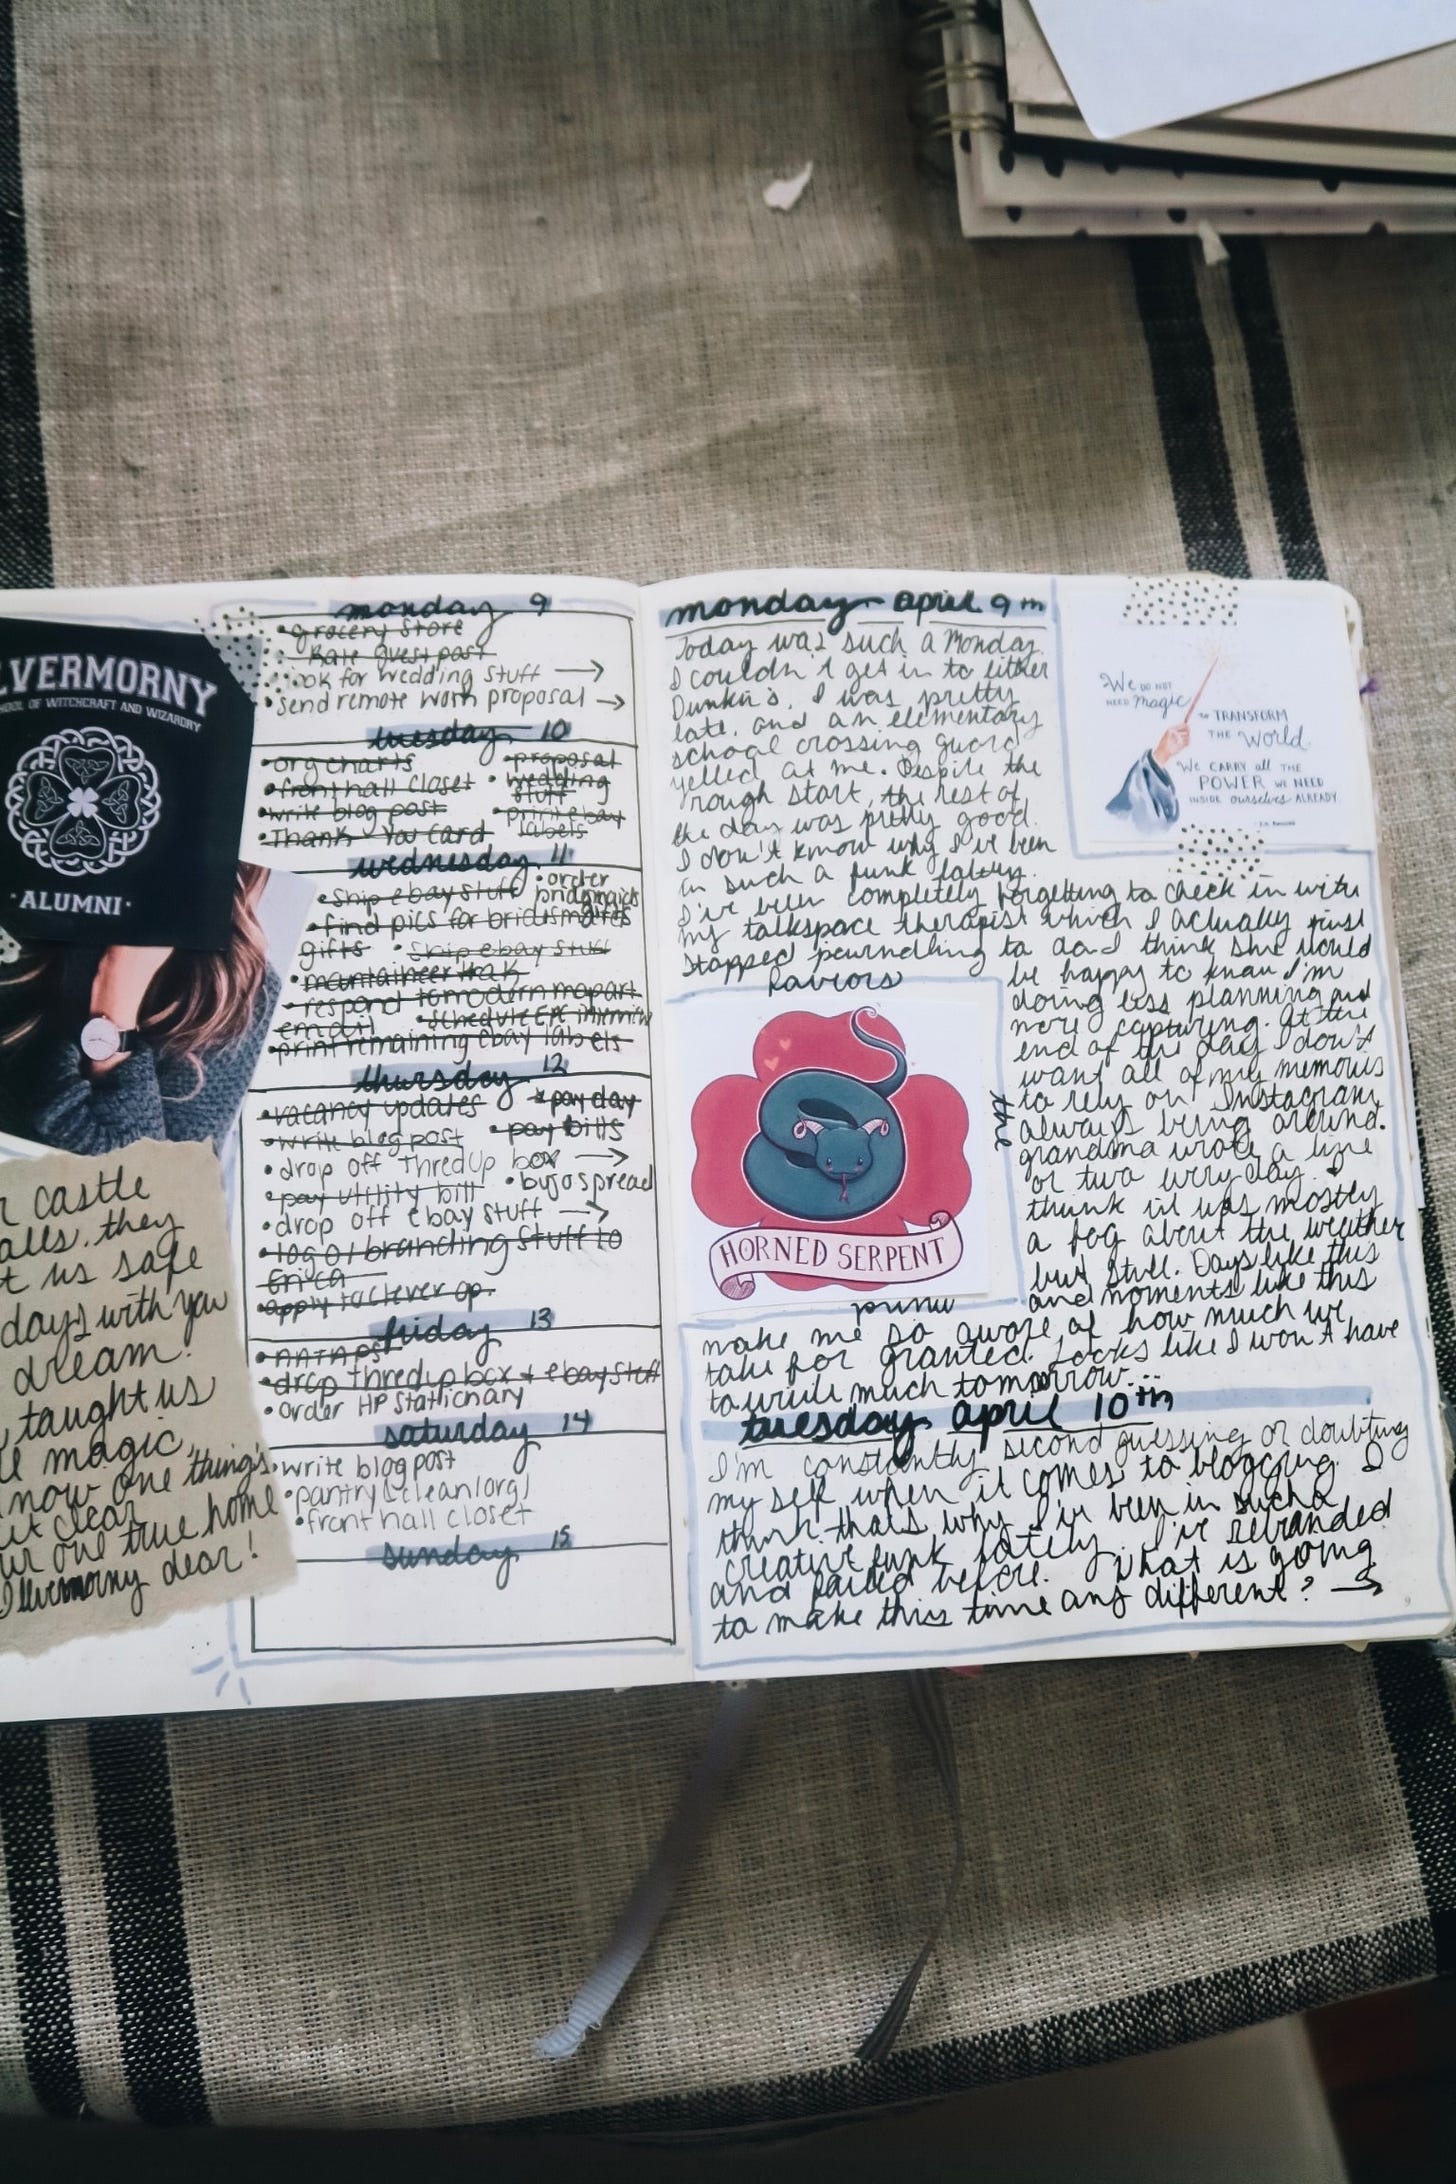 LVERMORNY
OOL OF WITCHCRAFT AND WIZARDRY
·ALUMNI·
r castle
alls, they
t us safe
days with you
dream!
taught us
e magic
now one thing's
it clear
ur one true home
Ilvermorny dear!
monday 9
•grocery store
•Kate guest post
ook for wedding stuff →
•send remote work proposal →
tuesday 10
•org charts
•front hall closet
•write blog post
•Thank You Card
•proposal
•wedding
stuff
•print ebay
labels
wednesday 11
•ship ebay stuff
•order
bridesmaids
gifts
•find pics for bridesmaids
gifts
•ship ebay stuff
•mountaineer
•respond to modern mopart
email
•schedule interview
•print remaining ebay labels
thursday 12
•vacancy updates
*pay day
•write blog post
•pay bills
•drop off thredup box →
•pay utility bill
•bujo spread
•drop off ebay stuff →
•logo/branding stuff to
Erica
•apply to clever op.
friday 13
•drop thredup box + ebay stuff
•order HP stationary
saturday 14
•write blog post
•pantry (clean/org)
•front hall closet
sunday 15
monday april 9th
Today was such a Monday.
I couldn't get in to either
Dunkin's, I was pretty
late, and an elementary
school crossing guard
yelled at me. Despite the
rough start, the rest of
the day was pretty good.
I don't know why I've been
in such a funk lately.
I've been completely forgetting to check in with
my talkspace therapist which I actually just
stopped journaling to do. I think she would
be happy to know I'm
doing less planning and
more capturing. At the
end of the day I don't
want all of my memories
to rely on Instagram
always being around.
grandma wrote a line
or two every day. I
think it was mostly
a log about the weather
but still. Days like this
and moments like this
make me so aware of how much we
take for granted. Looks like I won't have
to write much tomorrow...
HORNED SERPENT
the
We DO NOT
NEED magic
to TRANSFORM
THE World.
We CARRY all THE
POWER WE NEED
INSIDE ourselves ALREADY.
tuesday april 10th
I'm constantly second guessing or doubting
myself when it comes to blogging. I
think that's why I've been in such a
creative funk lately. I've rebranded
and failed before. What is going
to make this time any different? →
9